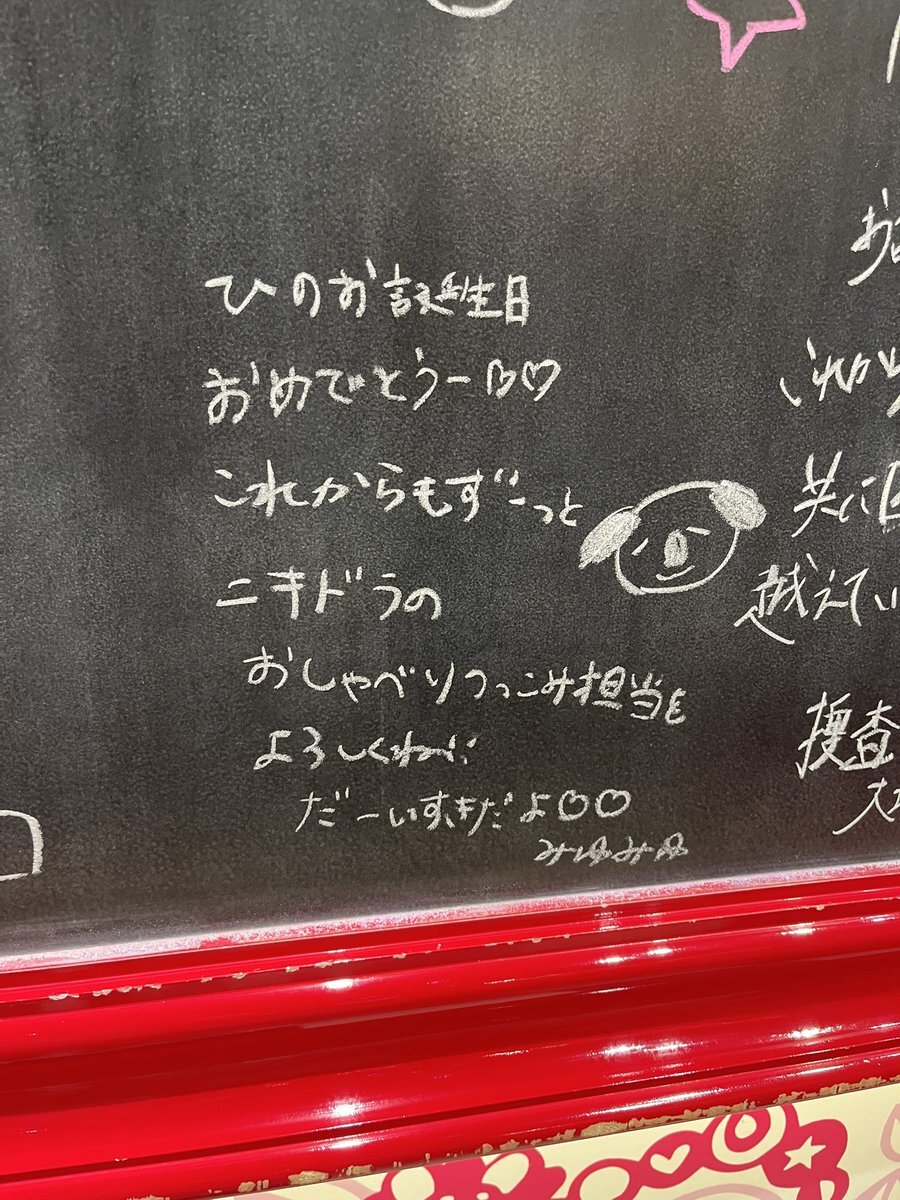 ひのお誕生日
おめでとうー♡♡
これからもずーっと
ニキドラの
おしゃべりつっこみ担当を
よろしくね
だーいすきだよ♡♡
みゆみゆ
これから
共に
越えてい
捜査